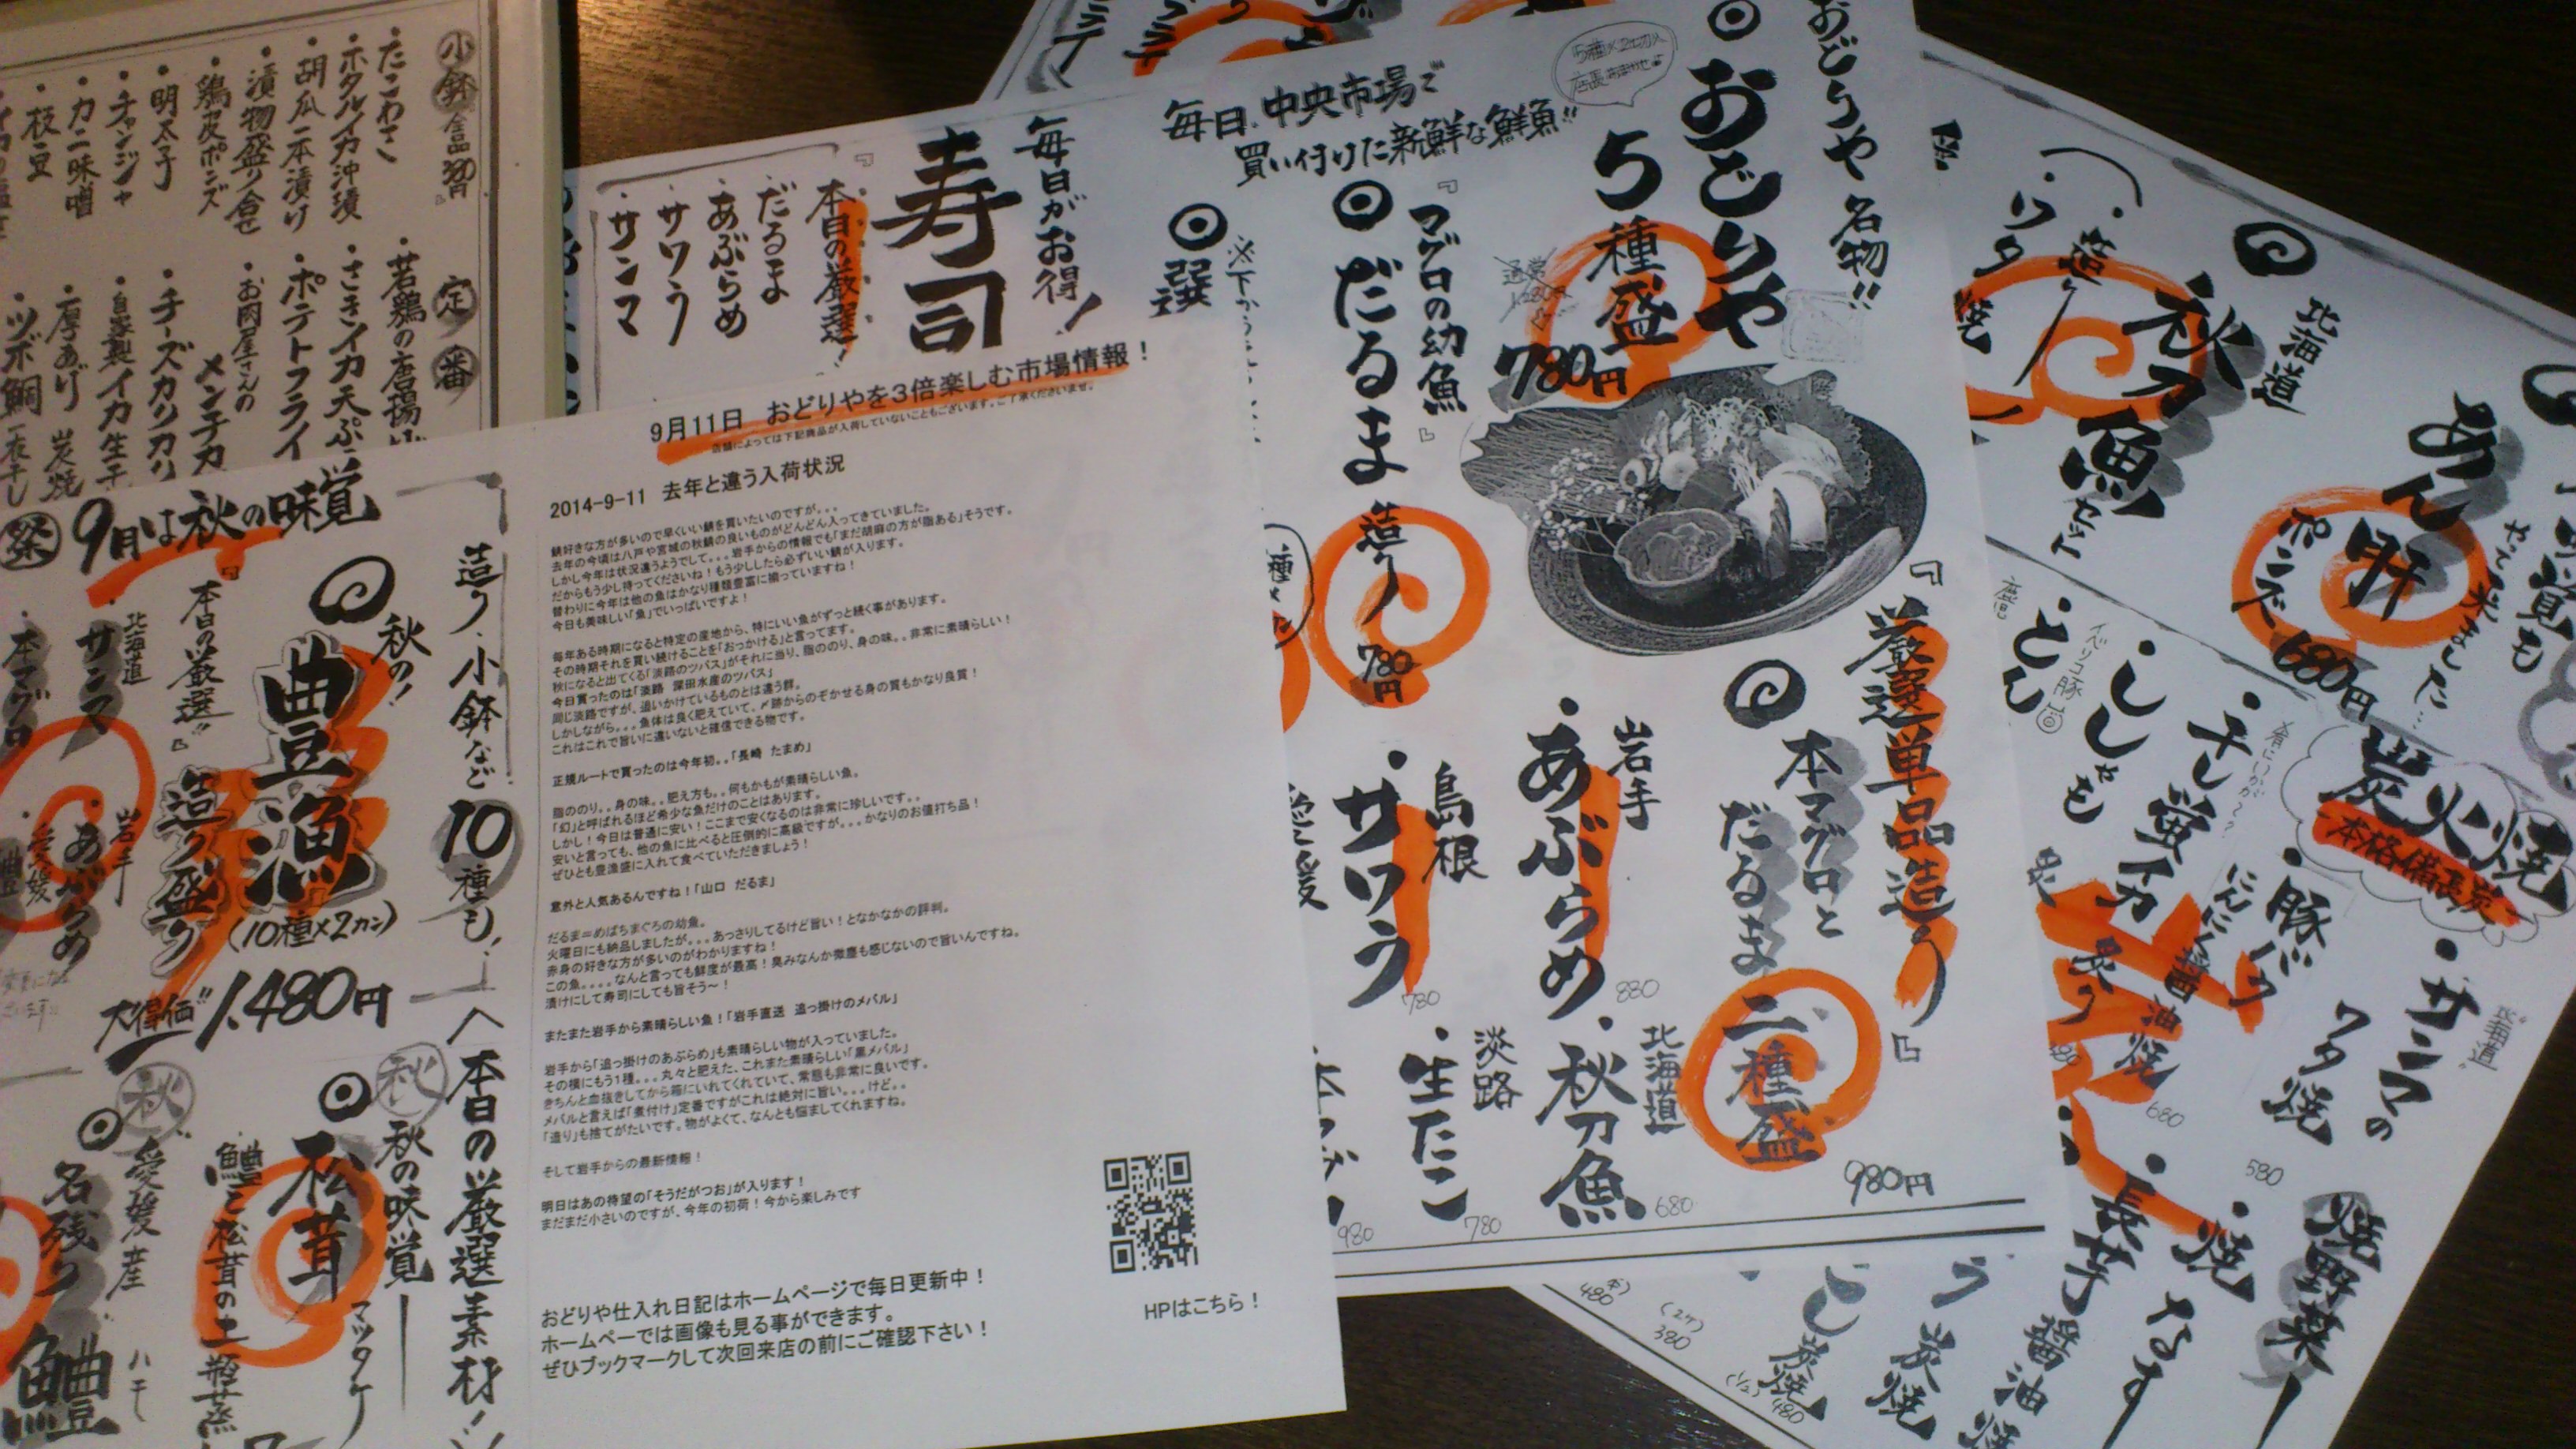 小鉢
全品380円
・たこわさ
・ホタルイカ沖漬
・胡瓜一本漬け
・漬物盛り合せ
・鶏皮ポンズ
・明太子
・チャンジャ
・カニ味噌
・枝豆
定番
・若鶏の唐揚げ
・さきイカ天ぷら
・ポテトフライ
・お肉屋さんの
メンチカツ
・チーズカリカリ
・自家製イカ生干
・厚あげ 炭焼
・ツボ鯛一夜干し
毎日がお得!
寿司
『本日の厳選!
だるま
・あぶらめ
・サワラ
・サンマ
毎日、中央市場で
買い付けた新鮮な鮮魚!!
おどりや名物!!
おどりや
5種盛
5種×2切入
780円
『マグロの幼魚』
だるま
造り
780円
『厳選単品造り』
本マグロと
だるま
二種盛
980円
岩手
・あぶらめ
880
島根
・サワラ
780
北海道
・秋刀魚
680
淡路
・生たこ
780
980
北海道
秋刀魚
セット
・造り
・ワタ
焼
やって来ました…
あん肝
ポンズ
680円
炭火焼
本格備長炭
北海道
・サンマの
ワタ焼
580
・豚バラ
にんにく醤油焼
680
・干し蛍イカ
・ししゃも
イベリコ豚
・とん
焼野菜
・焼なす
・長芋
醤油焼
炭焼
480
380
炭焼
480
9月11日 おどりやを3倍楽しむ市場情報!
店舗によっては下記商品が入荷していないこともございます。ご了承くださいませ。
2014-9-11 去年と違う入荷状況
鯖好きな方が多いので早くいい鯖を買いたいのですが。。。
去年の今頃は八戸や宮城の秋鯖の良いものがどんどん入ってきていました。
しかし今年は状況違うようでして。。。岩手からの情報でも「まだ胡麻の方が脂ある」そうです。
だからもう少し待ってくださいね!もう少ししたら必ずいい鯖が入ります。
替わりに今年は他の魚はかなり種類豊富に揃っていますね!
今日も美味しい「魚」でいっぱいですよ!
毎年ある時期になると特定の産地から、特にいい魚がずっと続く事があります。
その時期それを買い続けることを「おっかける」と言ってます。
秋になると出てくる「淡路のツバス」がそれに当り、脂ののり、身の味。。非常に素晴らしい!
今日買ったのは「淡路 深田水産のツバス」
同じ淡路ですが、追いかけているものとは違う群。
しかしながら。。。魚体は良く肥えていて、〆跡からのぞかせる身の質もかなり良質!
これはこれで旨いに違いないと確信できる物です。
正規ルートで買ったのは今年初。。「長崎 たまめ」
脂ののり。。身の味。。肥え方も。。何もかもが素晴らしい魚。
「幻」と呼ばれるほど希少な魚だけのことはあります。
しかし!今日は普通に安い!ここまで安くなるのは非常に珍しいです。。
安いと言っても、他の魚に比べると圧倒的に高級ですが。。。かなりのお値打ち品!
ぜひとも豊漁盛に入れて食べていただきましょう!
意外と人気あるんですね!「山口 だるま」
だるま=めばちまぐろの幼魚。
火曜日にも納品しましたが。。。あっさりしてるけど旨い!となかなかの評判。
赤身の好きな方が多いのがわかりますね!
この魚。。。。なんと言っても鮮度が最高!臭みなんか微塵も感じないので旨いんですね。
漬けにして寿司にしても旨そう~!
またまた岩手から素晴らしい魚!「岩手直送 追っ掛けのメバル」
岩手から「追っ掛けのあぶらめ」も素晴らしい物が入っていました。
その横にもう1種。。。丸々と肥えた、これまた素晴らしい「黒メバル」
きちんと血抜きしてから箱にいれてくれていて、常態も非常に良いです。
メバルと言えば「煮付け」定番ですがこれは絶対に旨い。。。けど。。
「造り」も捨てがたいです。物がよくて、なんとも悩ましてくれますね。
そして岩手からの最新情報!
明日はあの待望の「そうだがつお」が入ります!
まだまだ小さいのですが、今年の初荷!今から楽しみです
おどりや仕入れ日記はホームページで毎日更新中!
ホームペーでは画像も見る事ができます。
ぜひブックマークして次回来店の前にご確認下さい!
HPはこちら!
祭 9月は秋の味覚
造り、小鉢など10種も!
秋の!
豊漁
造り盛り
(10種×2カン)
大得価!! 1,480円
『本日の厳選!!』
北海道
・サンマ
岩手
・あぶらめ
・本マグロ
愛媛
へ本日の厳選素材!
秋 秋の味覚
松茸
マツタケ
鱧と松茸の土瓶蒸
秋 愛媛産
名残り
鱧